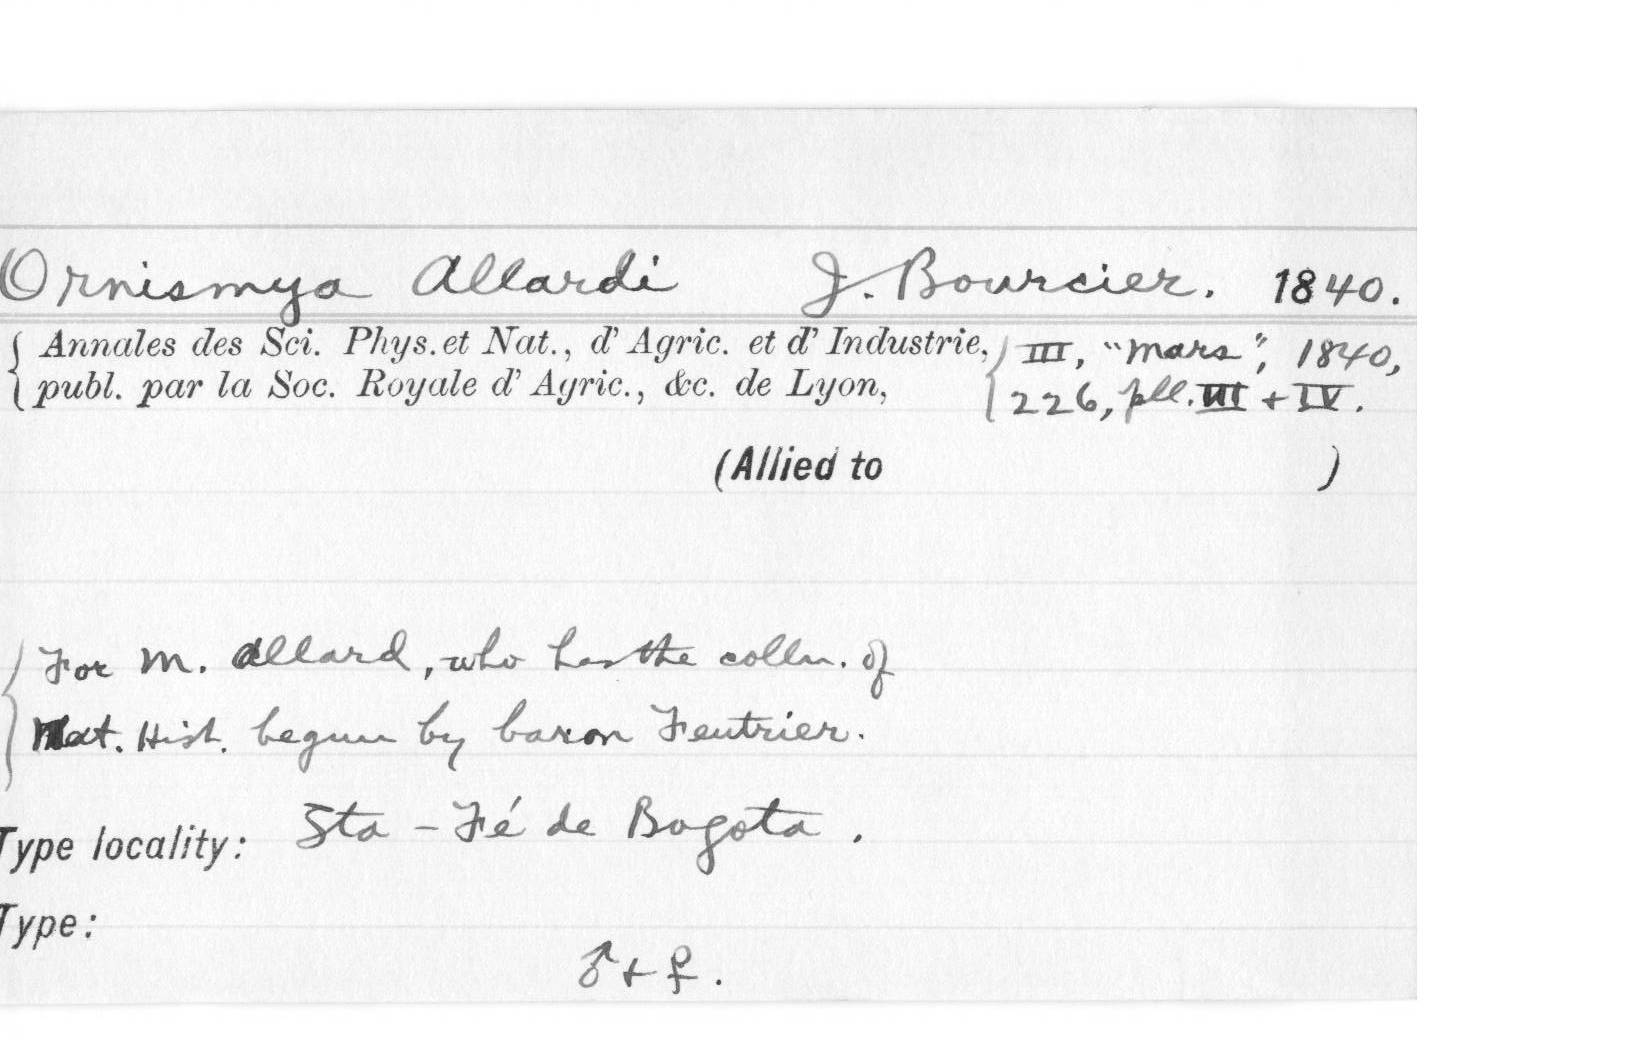 Ornismya Allardi J. Bourcier. 1840.
{ Annales des Sci. Phys. et Nat., d' Agric. et d' Industrie, { III, "Mars", 1840,
publ. par la Soc. Royale d' Agric., &c. de Lyon, 226, pll. III + IV.
(Allied to )
{ For M. Allard, who has the colln. of
Nat. Hist. begun by baron Feutrier.
Type locality: Sta - Fé de Bogota.
Type:
♂ + ♀.